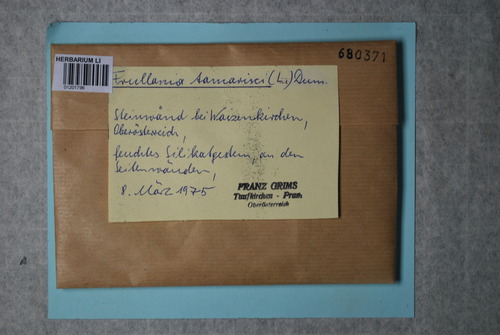 HERBARIUM LI
680371
Frullania tamarisci (L.) Dum.
Steinwänd bei Waizenkirchen,
Oberösterreich,
feuchtes Silikatgestein, an den
Seitenwänden,
8. März 1975
FRANZ GRIMS
Taufkirchen - Pram
Oberösterreich